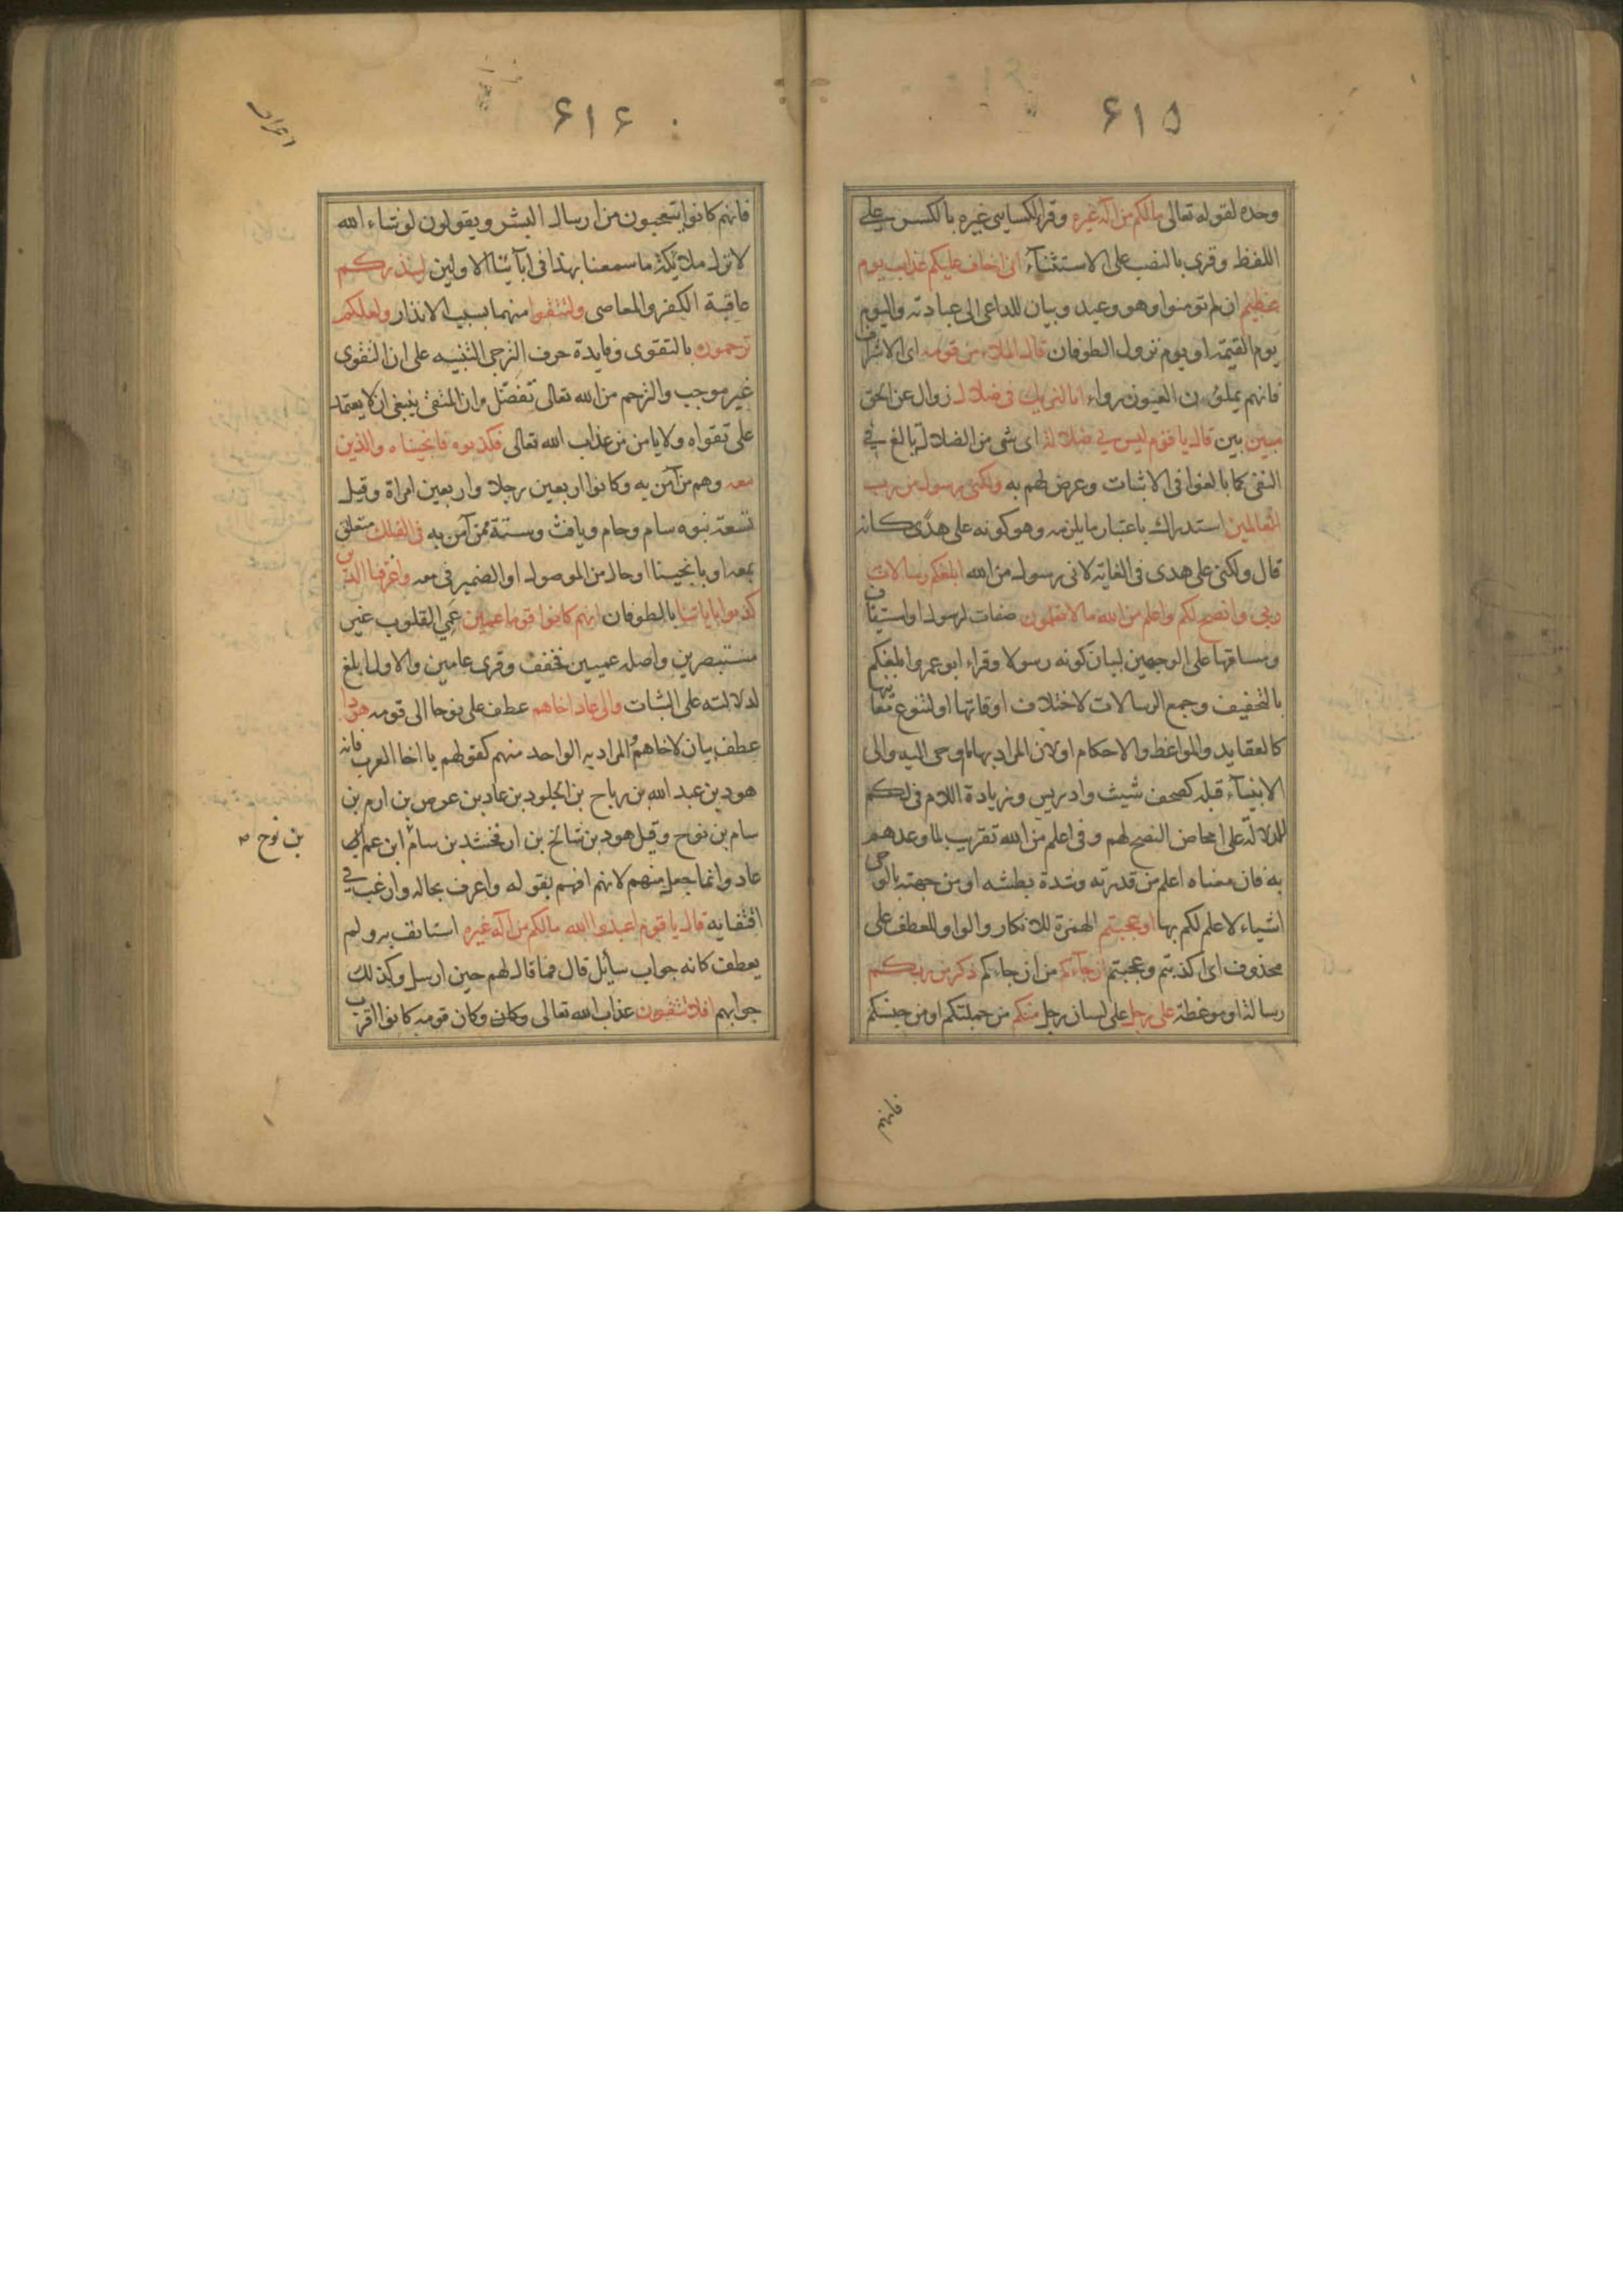 ۶۱۵
وحده لقوله تعالى مالكم من اله غيره وقرا الكسايى غيره بالكسر على
اللفظ وقرى بالنصب على الاستثنآء انى اخاف عليكم عذاب يوم
عظيم ان لم تومنوا وهو وعيد وبيان للداعى الى عبادته واليوم
يوم القيمة او يوم نزول الطوفان قال الملاء من قومه اى الاشراف
فانهم يملؤن العيون رواء انا لنريك فى ضلال زوال عن الحق
مبين بين قال يا قوم ليس بي ضلالة اى شى من الضلالة بالغ في
النفى كما بالغوا فى الاثبات وعرض لهم به ولكنى رسول من رب
العالمين استدراك باعتبار ما يلزمه وهو كونه على هدى كانه
قال ولكنى على هدى فى الغاية لانى رسول من الله ابلغكم رسالات
ربى وانصح لكم واعلم من الله مالا تعلمون صفات لرسول او استيناف
ومساقها على الوجهين لبيان كونه رسولا وقراء ابو عمرو ابلغكم
بالتخفيف وجمع الرسالات لاختلاف اوقاتها او لتنوع معانيها
كالعقايد والمواعظ والاحكام او لان المراد بها ما اوحى اليه والى
الانبيآء قبله كصحف شيث وادريس وزيادة اللام فى لكم
للدلالة على امحاض النصح لهم وفى اعلم من الله تقريب لما وعدهم
به فان معناه اعلم من قدرته وشدة بطشه او من جهته بالوحى
اشياء لا علم لكم بها اوعجبتم الهمزة للانكار والواو للعطف على
محذوف اى اكذبتم وعجبتم ان جآءكم من ان جاءكم ذكر من ربكم
رسالة او موعظة على رجل على لسان رجل منكم من جملتكم او من جنسكم
فانهم
۶۱۶
فانهم كانوا يتعجبون من ارسال البشر ويقولون لو شاء الله
لانزل ملائكة ما سمعنا بهذا فى ابآئنا الاولين لينذركم
عاقبة الكفر والمعاصى ولتتقوا منهما بسبب الانذار ولعلكم
ترحمون بالتقوى وفايدة حرف الترجى التنبيه على ان التقوى
غير موجب والترحم من الله تعالى تفضل وان المتقى ينبغى ان لا يعتمد
على تقواه ولا يامن من عذاب الله تعالى فكذبوه فانجيناه والذين
معه وهم من آمن به وكانوا اربعين رجلا واربعين امراة وقيل
تسعة بنوه سام وحام ويافث وستة ممن آمن به فى الفلك متعلق
بمعه او بانجينا او حال من الموصول او الضمير فى معه واغرقنا الذين
كذبوا باياتنا بالطوفان انهم كانوا قوما عمين عمى القلوب غير
مستبصرين واصله عميين فخفف وقرى عامين والاول ابلغ
لدلالته على الثبات والى عاد اخاهم عطف على نوحا الى قومه هودا
عطف بيان لاخاهم والمراد به الواحد منهم كقولهم يا اخا العرب فانه
هود بن عبد الله بن رباح بن الجلود بن عاد بن عوص بن ارم بن
سام بن نوح وقيل هود بن شالخ بن ارفخشد بن سام ابن عم ابى
بن نوح
عاد وانما جعل منهم لانهم افهم بقوله واعرف بحاله وارغب في
اقتفايه قال يا قوم اعبدوا الله مالكم من اله غيره استانف به ولم
يعطف كانه جواب سآئل قال فما قال لهم حين ارسل وكذلك
جوابهم افلا تتقون عذاب الله تعالى وكان وكان قومه كانوا اقرب